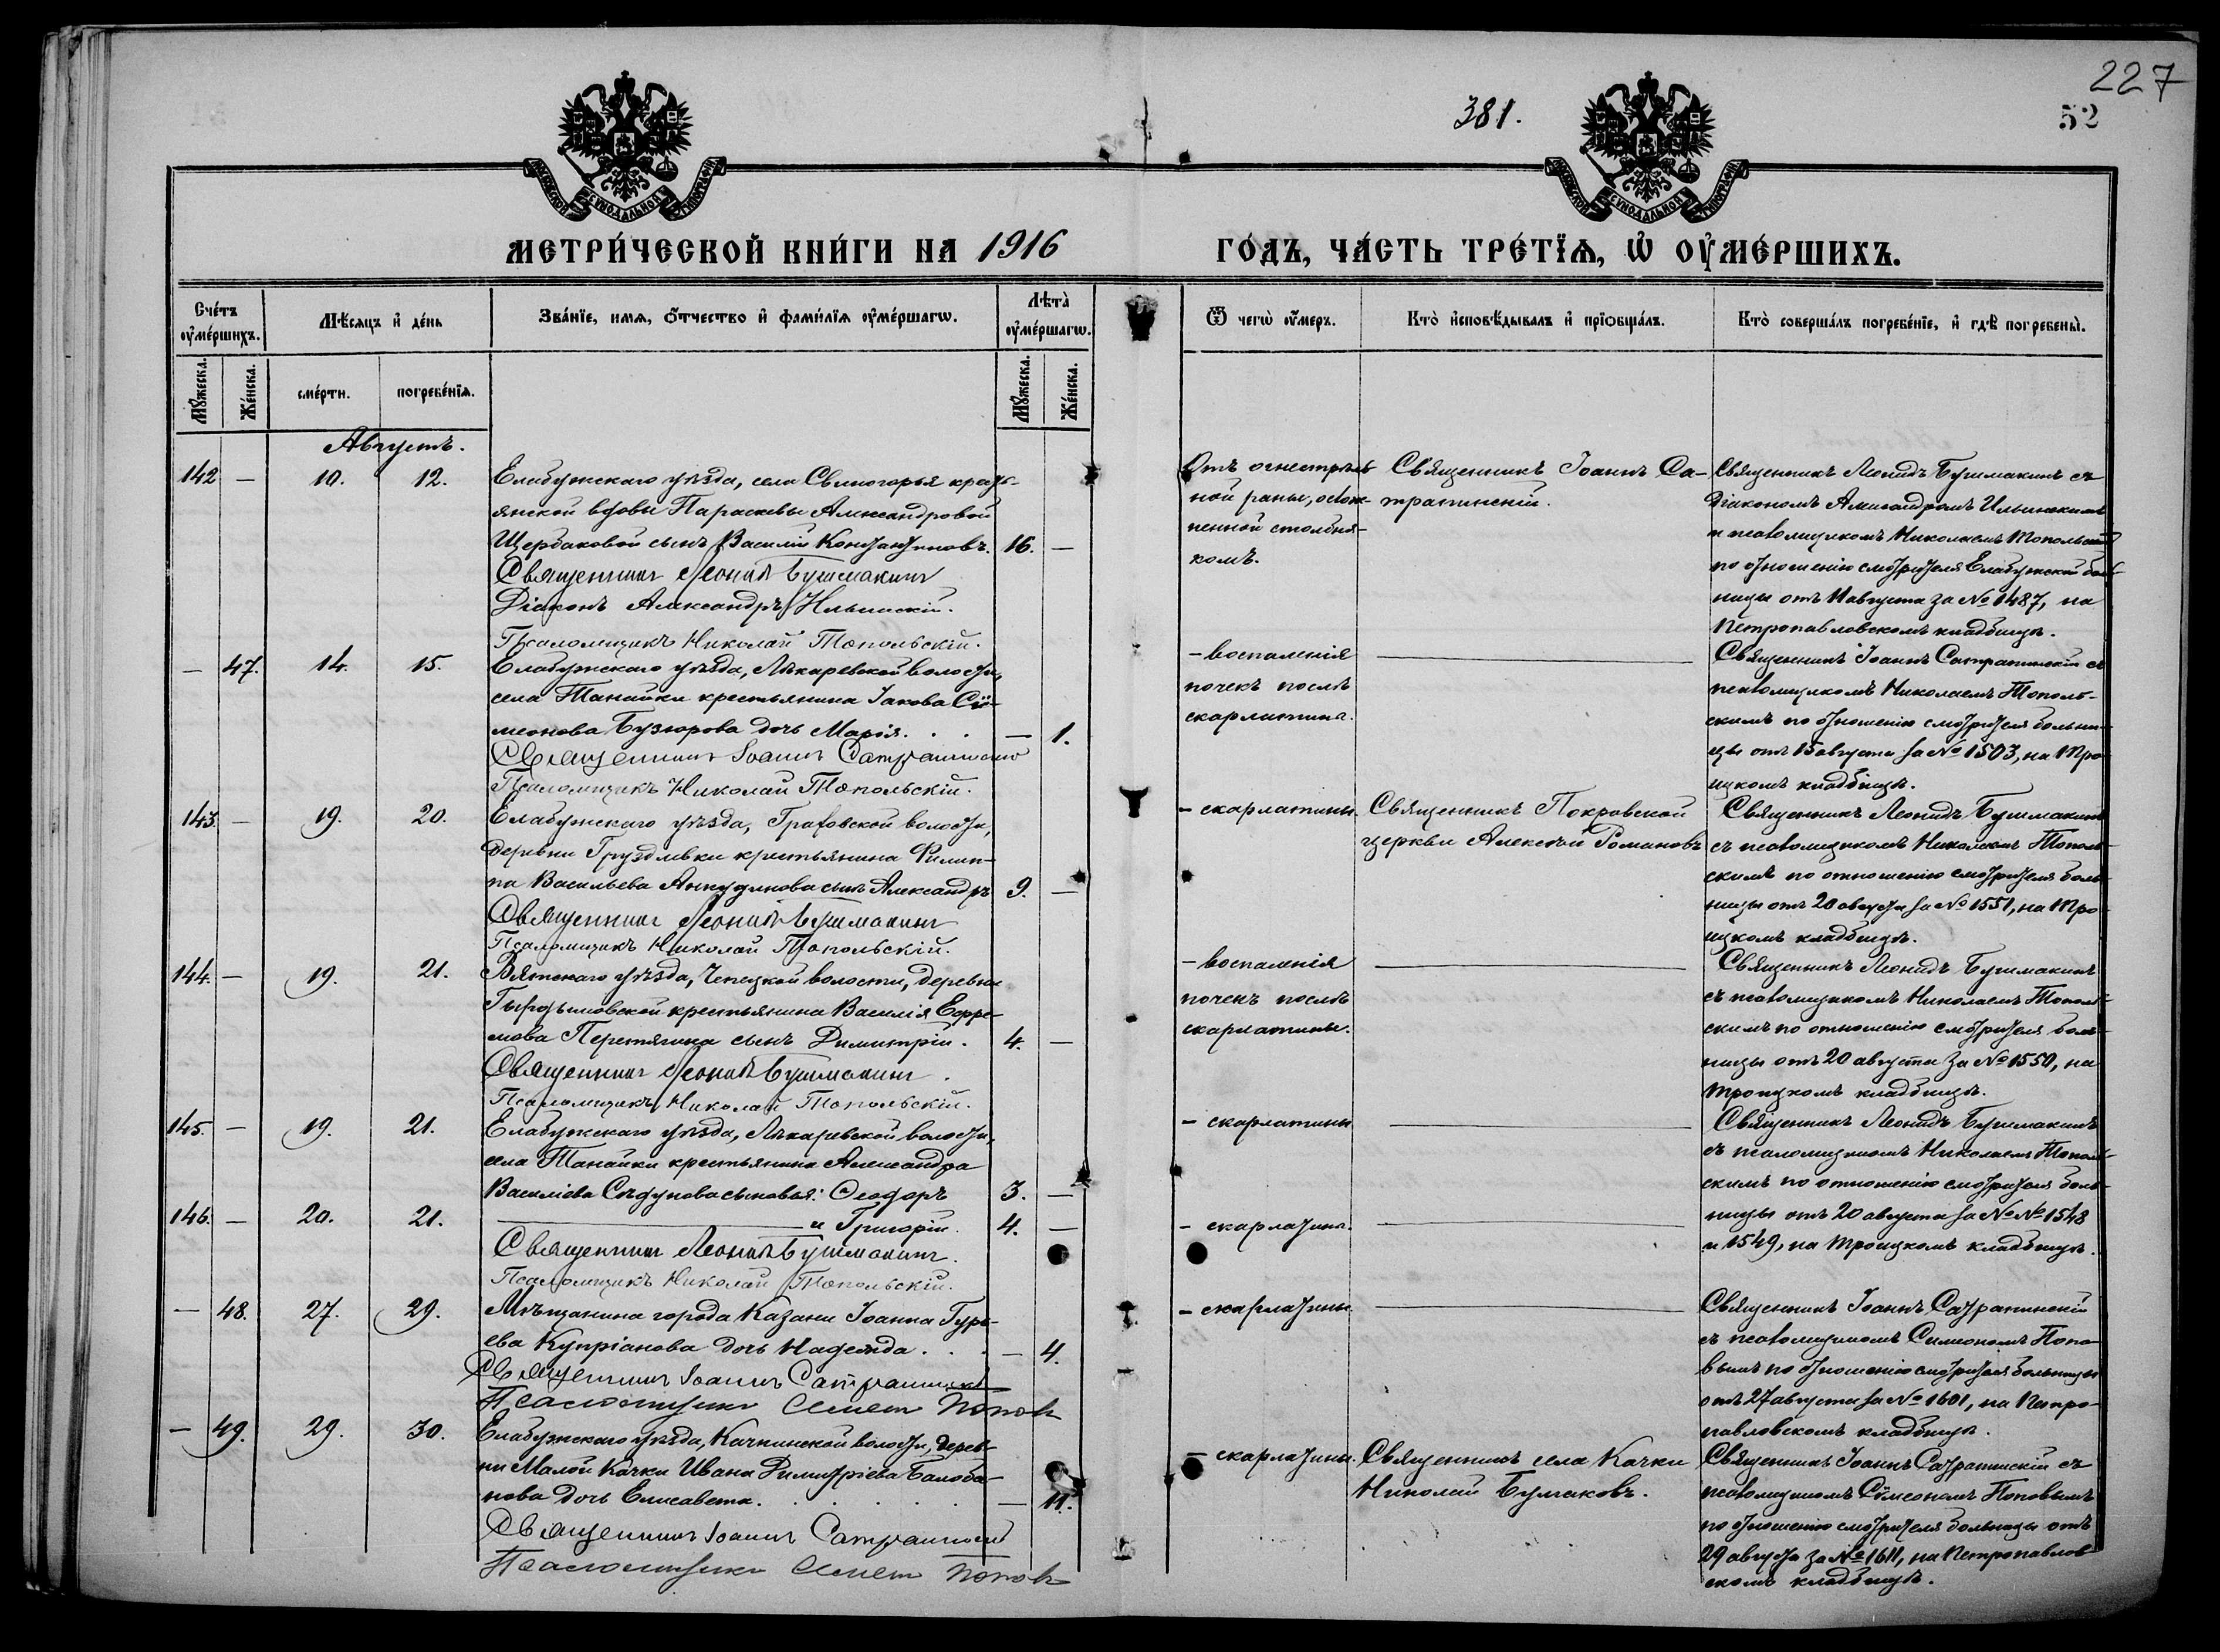 227
381.
52
МОСКОВСКОЙ СУНОДАЛЬНОЙ ТИПОГРАФІИ
МОСКОВСКОЙ СУНОДАЛЬНОЙ ТИПОГРАФІИ
МЕТРИ́ЧЕСКОЙ КНИ́ГИ НА 1916
ГО́ДЪ, ЧА́СТЬ ТРЕ́ТЇѦ, Ѡ҆ ОУ҆МЕ́РШИХЪ.
Сче́тъ оу҆ме́ршихъ.
Мѣ́сяцъ и҆ де́нь
Зва́нїе, имѧ, ѻ҆́тчество и҆ фами́лїѧ оу҆ме́ршагѡ.
Лѣта̀ оу҆ме́ршагѡ.
Ѿ чегѡ̀ оу҆́меръ.
Кто̀ и҆сповѣ́дывалъ и҆ прїѻбща́лъ.
Кто̀ соверша́лъ погребе́нїе, и҆ гдѣ̀ погребены̀.
Мꙋ́жеска.
Же́нска.
сме́рти.
погребе́нїѧ.
Мꙋ́жеска.
Же́нска.
Августъ.
142 — 10. 12.
Елабужскаго уѣзда, села Свиногорья кресть-
янской вдовы Параскевы Александровой
Щербаковой сынъ Василій Константиновъ. 16. —
Священникъ Леонидъ Бушмакинъ
Діаконъ Александръ Ильинскій.
Псаломщикъ Николай Топольскій.
Отъ огнестрѣль-
ной раны, ослож-
ненной столбня-
комъ.
Священникъ Іоаннъ Са-
трапинскій.
Священникъ Леонидъ Бушмакинъ съ
Діакономъ Александромъ Ильинскимъ
и псаломщикомъ Николаемъ Топольскимъ
по отношенію смотрителя Елабужской боль-
ницы отъ 11 августа за № 1487, на
Петропавловскомъ кладбищѣ.
— 47. 14. 15.
Елабужскаго уѣзда, Лѣкаревской волости,
села Танайки крестьянина Іакова Си-
меонова Бузюрова дочь Марія. . . — 1.
Священникъ Іоаннъ Сатрапинскій
Псаломщикъ Николай Топольскій.
— воспаленія
почекъ послѣ
скарлатина.
Священникъ Іоаннъ Сатрапинскій съ
псаломщикомъ Николаемъ Тополь-
скимъ по отношенію смотрителя больни-
цы отъ 15 августа за № 1503, на Тро-
ицкомъ кладбищѣ.
143. — 19. 20.
Елабужскаго уѣзда, Граховской волости,
деревни Груздевки крестьянина Филип-
па Васильева Анкудинова сынъ Александръ 9. —
Священникъ Леонидъ Бушмакинъ
Псаломщикъ Николай Топольскій.
— скарлатины.
Священникъ Покровской
церкви Алексѣй Романовъ
Священникъ Леонидъ Бушмакинъ
съ псаломщикомъ Николаемъ Тополь-
скимъ по отношенію смотрителя боль-
ницы отъ 20 августа за № 1551, на Тро-
ицкомъ кладбищѣ.
144. — 19. 21.
Вятскаго уѣзда, Чепецкой волости, деревни
крестьянина Василія Ефре-
мова Перетягина сынъ Димитрій. 4. —
Священникъ Леонидъ Бушмакинъ.
Псаломщикъ Николай Топольскій.
— воспаленія
почекъ послѣ
скарлатины.
Священникъ Леонидъ Бушмакинъ
съ псаломщикомъ Николаемъ Тополь-
скимъ по отношенію смотрителя боль-
ницы отъ 20 августа за № 1550, на
Троицкомъ кладбищѣ.
145. — 19. 21.
Елабужскаго уѣзда, Лѣкаревской волости,
села Танайки крестьянина Александра
Василіева Сѣдунова сыновья: Ѳеодоръ 3. —
— скарлатины
Священникъ Леонидъ Бушмакинъ
съ псаломщикомъ Николаемъ Тополь-
скимъ по отношенію смотрителя боль-
ницы отъ 20 августа за №№ 1548
и 1549, на Троицкомъ кладбищѣ.
146. — 20. 21.
и Григорій. 4. —
Священникъ Леонидъ Бушмакинъ.
Псаломщикъ Николай Топольскій.
— скарлатина.
— 48. 27. 29.
Мѣщанина города Казани Іоанна Гурь-
ева Купріанова дочь Надежда. . . — 4.
Священникъ Іоаннъ Сатрапинскій
Псаломщикъ Симеонъ Поповъ
— скарлатины
Священникъ Іоаннъ Сатрапинскій
съ псаломщикомъ Симеономъ Попо-
вымъ по отношенію смотрителя больницы
отъ 27 августа за № 1601, на Петро-
павловскомъ кладбищѣ.
— 49. 29. 30.
Елабужскаго уѣзда, Качкинской волости, дерев-
ни Малой Качки Ивана Димитріева Балоба-
нова дочь Елисавета. . . . . . — 11.
Священникъ Іоаннъ Сатрапинскій
Псаломщикъ Симеонъ Поповъ
— скарлатины.
Священникъ села Качки
Николай Булгаковъ.
Священникъ Іоаннъ Сатрапинскій съ
псаломщикомъ Симеономъ Поповымъ
по отношенію смотрителя больницы отъ
29 августа за № 1611, на Петропавлов-
скомъ кладбищѣ.